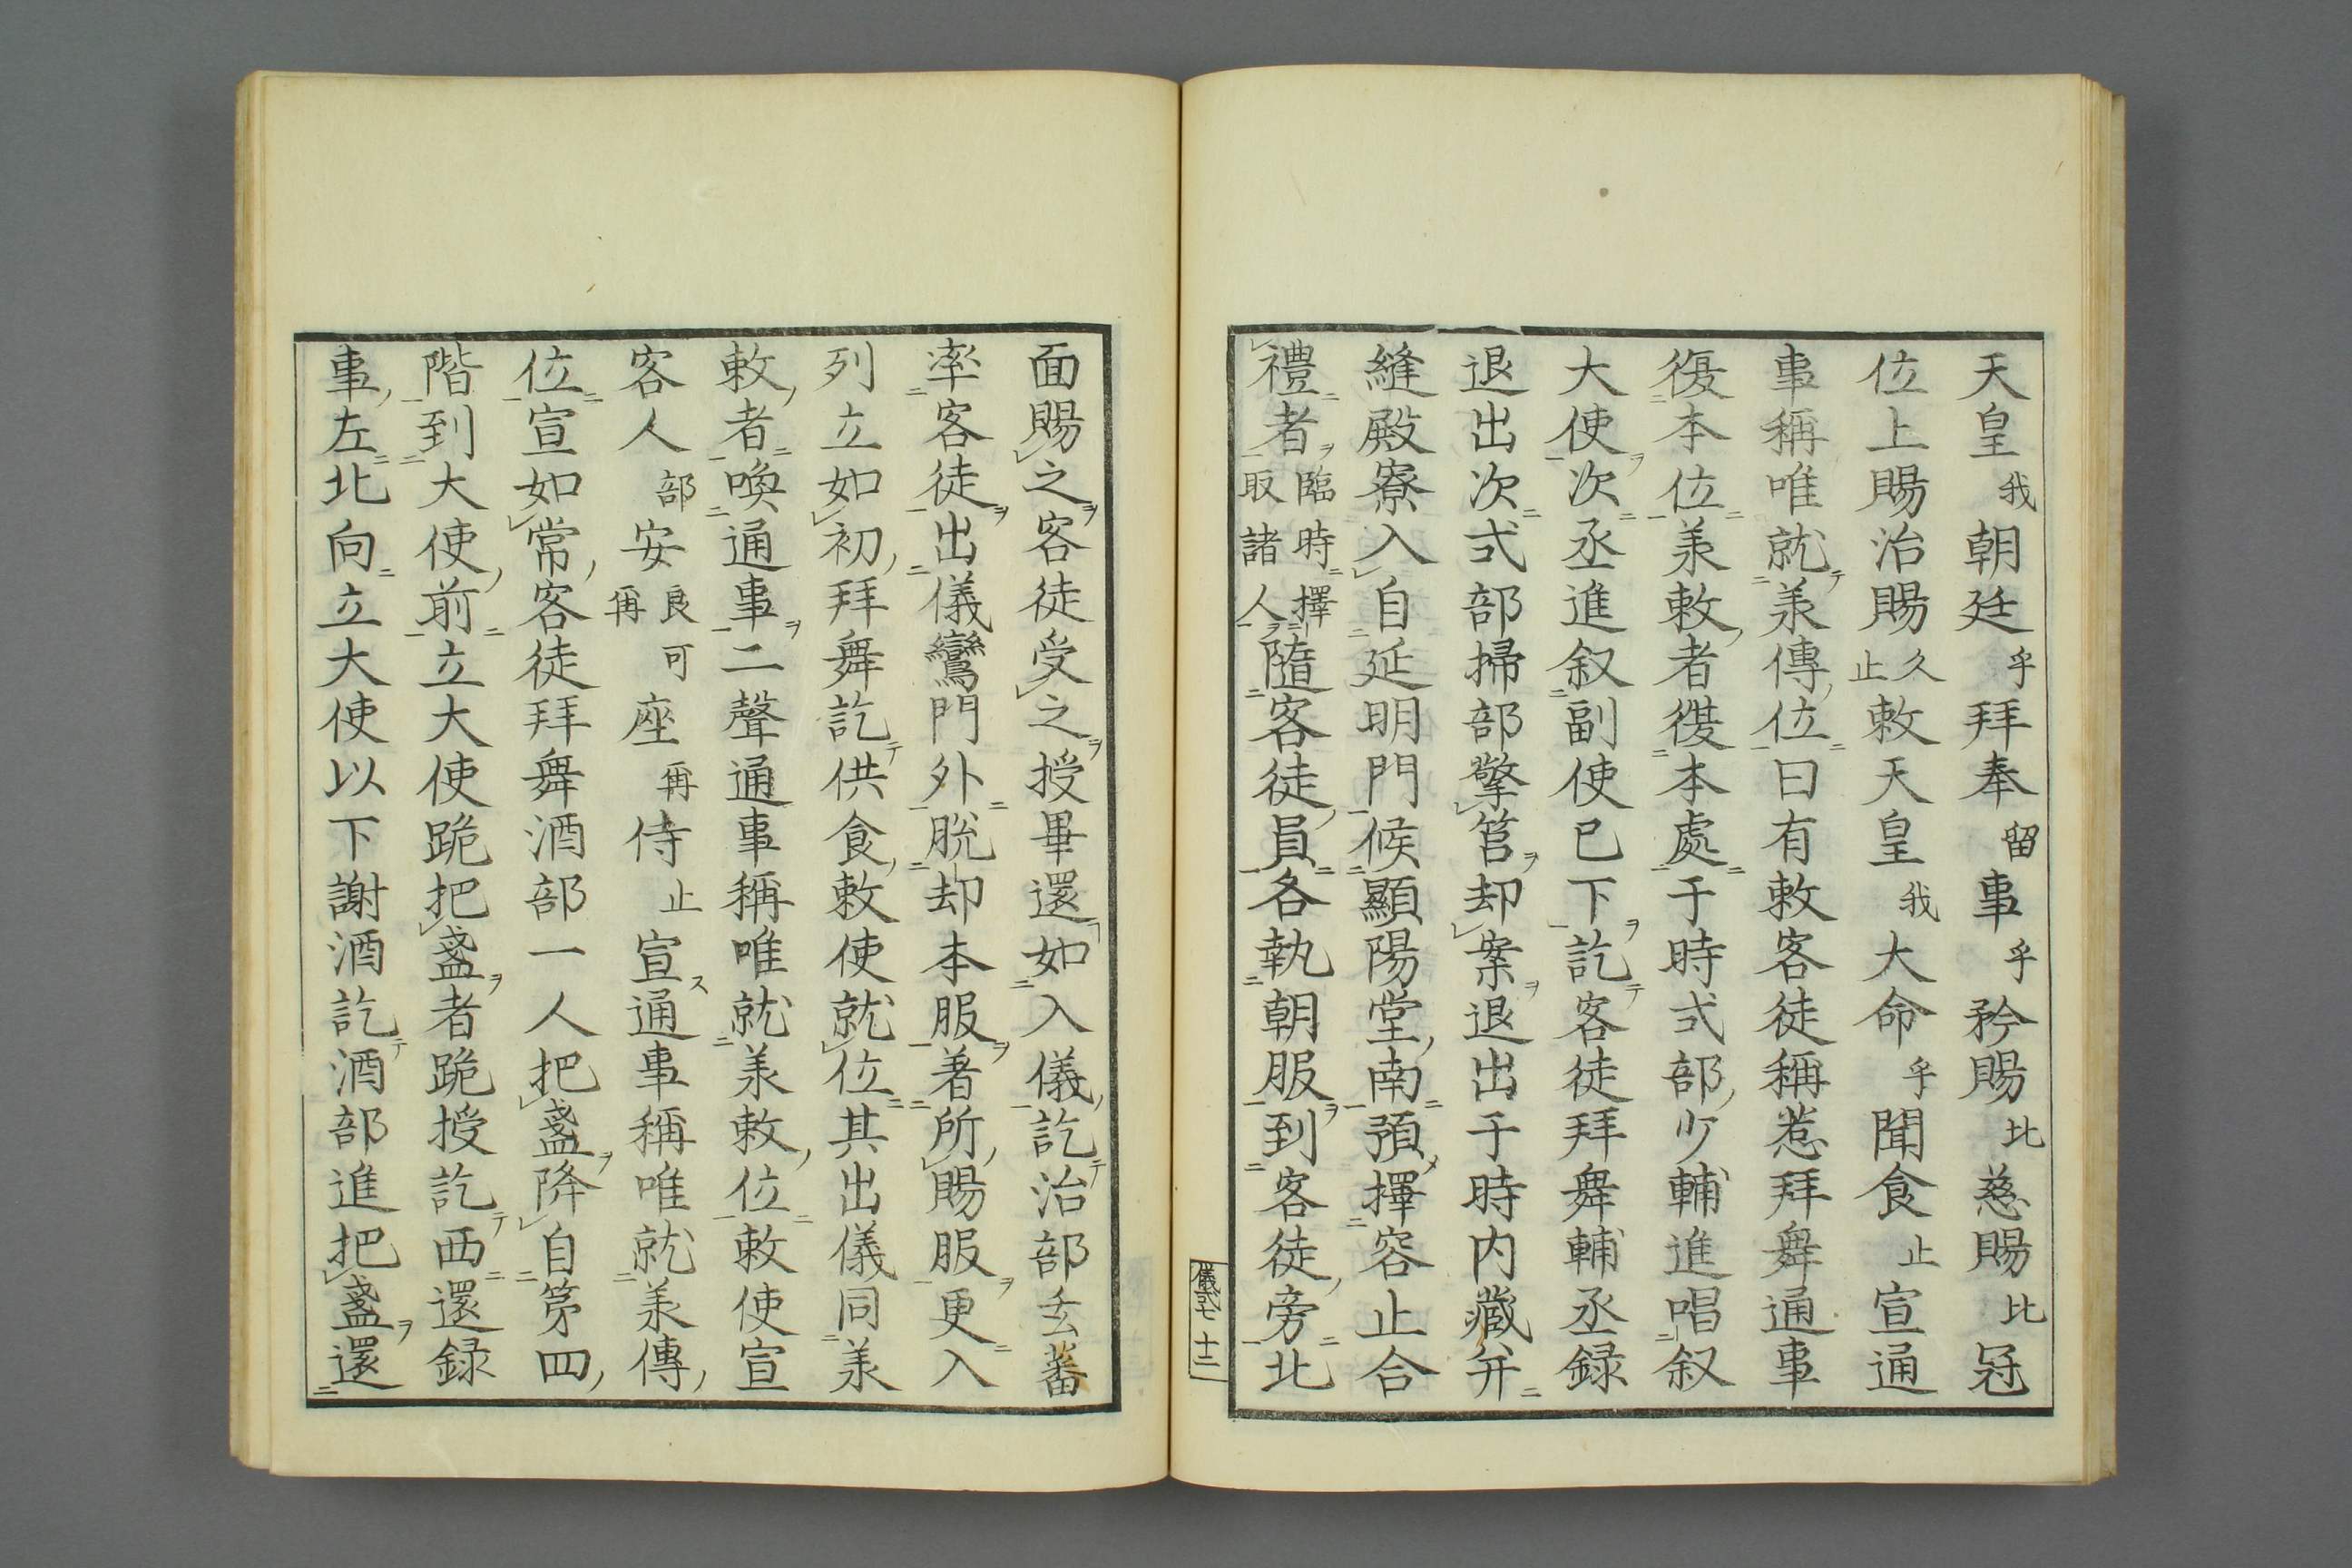 天皇我朝廷乎拜奉留事乎矜賜比慈賜比冠
位上賜治賜久止敕天皇我大命乎聞食止宣通
事稱唯就羕傳位曰有敕客徒稱惹拜舞通事
復本位羕敕者復本處于時式部少輔進唱叙
大使次丞進叙副使已下訖客徒拜舞輔丞録
退出次式部掃部擎筥却案退出于時内藏幷
縫殿寮入自延明門候顯陽堂南預擇容止合
禮者臨時擇取諸人隨客徒員各執朝服到客徒旁北
儀式七 十二
面賜之客徒受之授畢還如入儀訖治部玄蕃
率客徒出儀鸞門外脱却本服著所賜服更入
列立如初拜舞訖供食敕使就位其出儀同羕
敕者喚通事二聲通事稱唯就羕敕位敕使宣
客人部安良可座再侍止宣通事稱唯就羕傳
位宣如常客徒拜舞酒部一人把盞降自第四
階到大使前立大使跪把盞者跪授訖西還録
事左北向立大使以下謝酒訖酒部進把盞還